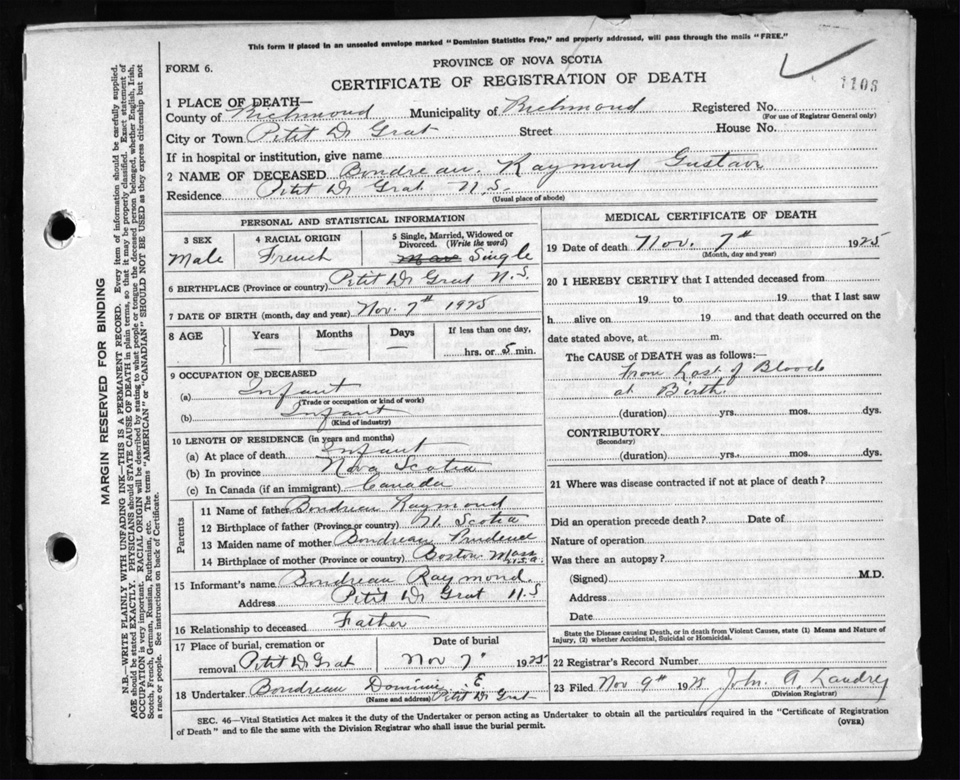 This form if placed in an unsealed envelope marked "Dominion Statistics Free," and properly addressed, will pass through the mails "FREE."
PROVINCE OF NOVA SCOTIA
FORM 6.
CERTIFICATE OF REGISTRATION OF DEATH
1108
1 PLACE OF DEATH—
County of Richmond Municipality of Richmond Registered No.
(For use of Registrar General only)
City or Town Petit De Grat Street House No.
If in hospital or institution, give name
2 NAME OF DECEASED Bondreau. Raymond Gustav
Residence Petit De Grat N.S.
(Usual place of abode)
PERSONAL AND STATISTICAL INFORMATION
3 SEX 4 RACIAL ORIGIN 5 Single, Married, Widowed or Divorced. (Write the word)
Male French Single
6 BIRTHPLACE (Province or country) Petit De Grat N.S.
7 DATE OF BIRTH (month, day and year) Nov. 7th 1925
8 AGE Years Months Days If less than one day,
— — — hrs. or 5 min.
9 OCCUPATION OF DECEASED
(a) Infant
(Trade or occupation or kind of work)
(b) Infant
(Kind of industry)
10 LENGTH OF RESIDENCE (in years and months)
(a) At place of death Infant
(b) In province Nova Scotia
(c) In Canada (if an immigrant) Canada
Parents
11 Name of father Bondreau Raymond
12 Birthplace of father (Province or country) N. Scotia
13 Maiden name of mother Bondreau Prudence
14 Birthplace of mother (Province or country) Boston Mass U.S.A.
15 Informant's name Bondreau Raymond.
Address Petit De Grat N.S
16 Relationship to deceased Father
17 Place of burial, cremation or Date of burial
removal Petit De Grat Nov 7th 1925
18 Undertaker Bondreau Dominic E
(Name and address) Petit De Grat
MEDICAL CERTIFICATE OF DEATH
19 Date of death Nov. 7th 1925
(Month, day and year)
20 I HEREBY CERTIFY that I attended deceased from
19 to 19 that I last saw
h alive on 19 and that death occurred on the
date stated above, at m.
The CAUSE of DEATH was as follows:—
from Lost of Blood
at Birth.
(duration) yrs. mos. dys.
CONTRIBUTORY
(Secondary)
(duration) yrs. mos. dys.
21 Where was disease contracted if not at place of death?
Did an operation precede death? Date of
Nature of operation
Was there an autopsy?
(Signed) M.D.
Address
Date
State the Disease causing Death, or in death from Violent Causes, state (1) Means and Nature of
Injury, (2) whether Accidental, Suicidal or Homicidal.
22 Registrar's Record Number
23 Filed Nov 9th 1925 John A. Landry
(Division Registrar)
SEC. 46—Vital Statistics Act makes it the duty of the Undertaker or person acting as Undertaker to obtain all the particulars required in the "Certificate of Registration
of Death" and to file the same with the Division Registrar who shall issue the burial permit. (OVER)
MARGIN RESERVED FOR BINDING
N.B.—WRITE PLAINLY WITH UNFADING INK—THIS IS A PERMANENT RECORD. Every item of information should be carefully supplied.
AGE should be stated EXACTLY. PHYSICIANS should STATE CAUSE OF DEATH in plain terms, so that it may be properly classified. Exact statement of
OCCUPATION is very important. RACIAL ORIGIN will be described by stating to what people or tongue the deceased person belonged, whether English, Irish,
Scotch, French, German, Russian, Ruthenian, etc. The terms "AMERICAN" or "CANADIAN" SHOULD NOT BE USED as they express citizenship but not
a race or people. See instructions on back of Certificate.